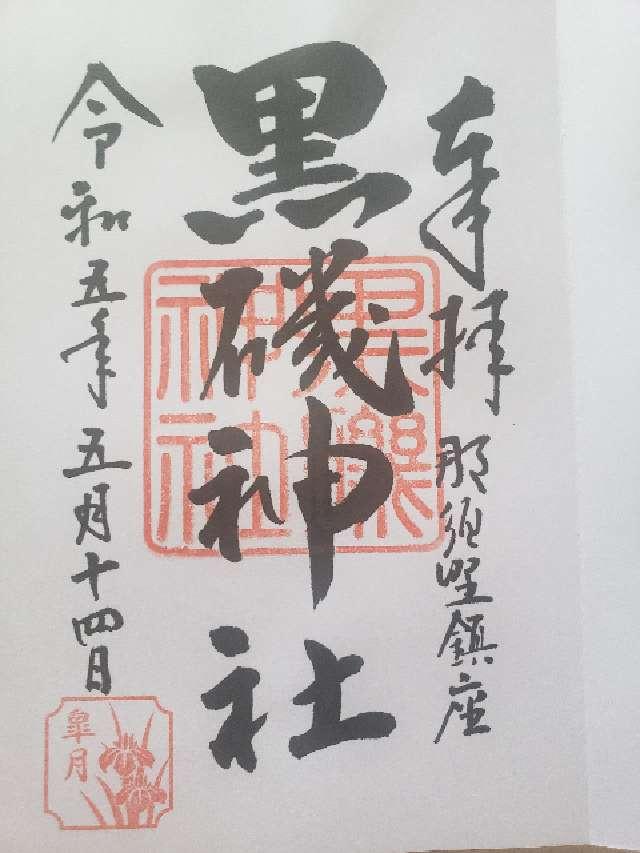 奉拝 那須野鎮座
黒磯神社
令和五年五月十四日
黒磯
神社
皐月